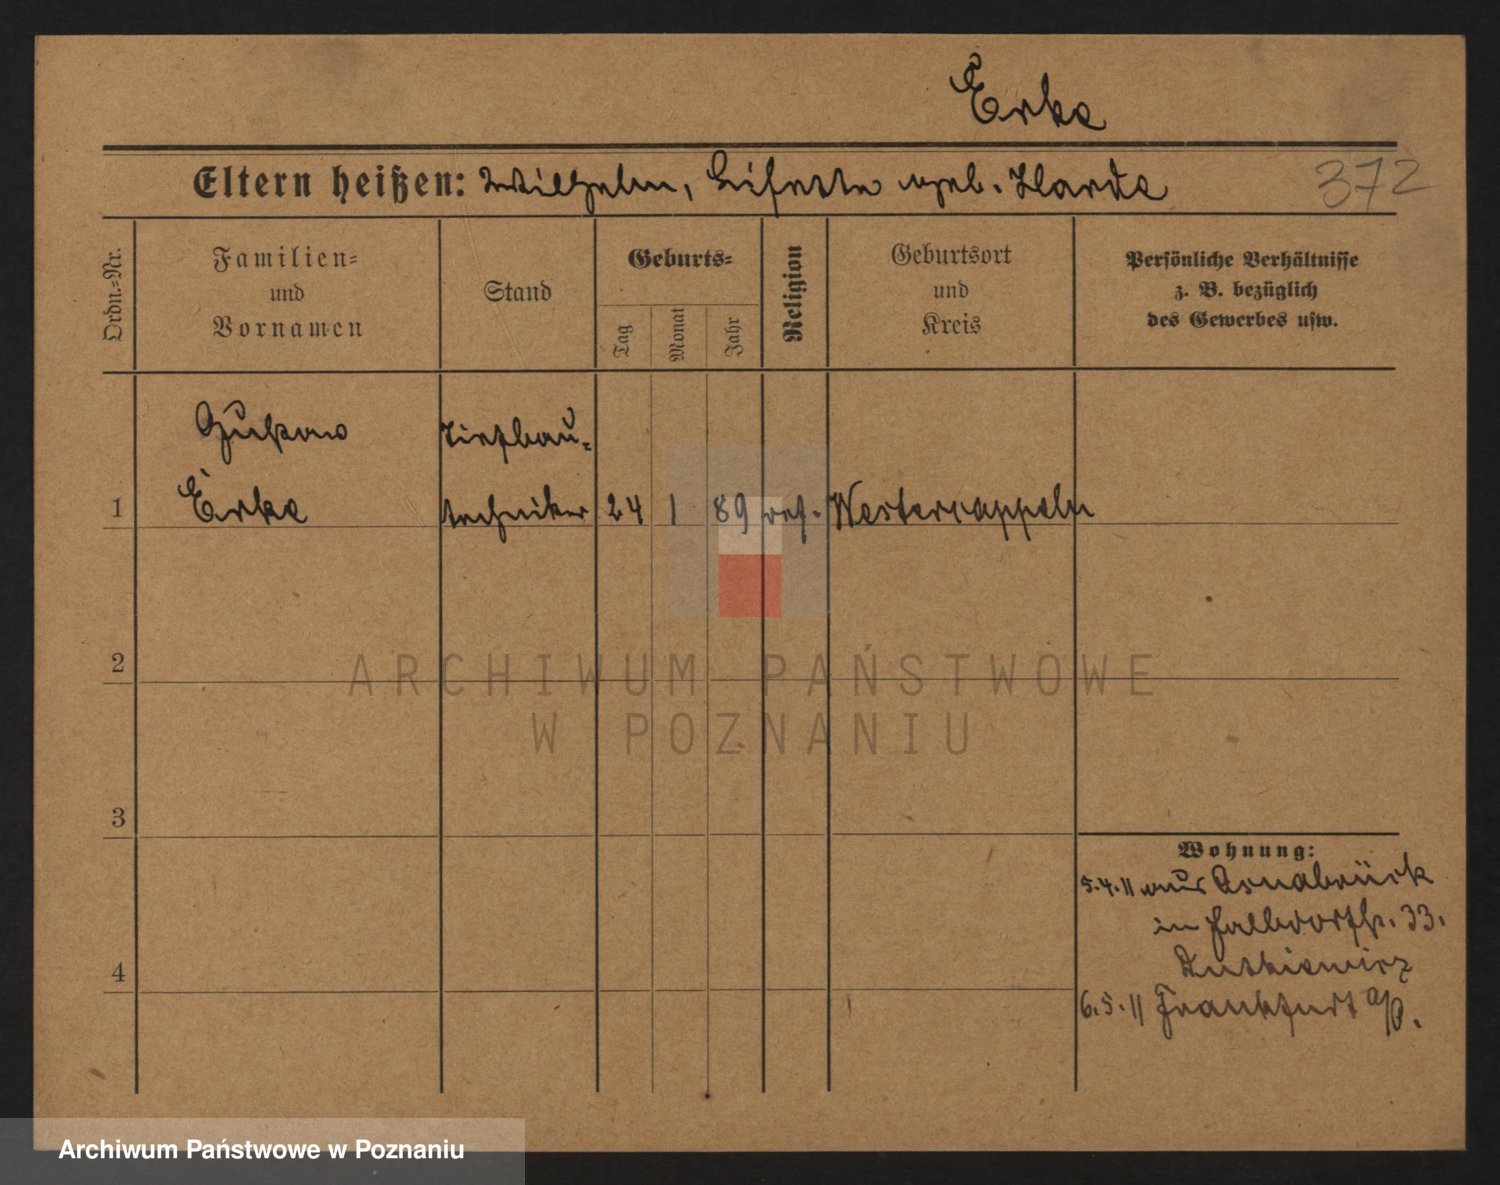 Erke
Eltern heißen: Wilhelm, Lisette geb. Harde
372
Ordn.-Nr.
Familien-
und
Vornamen
Stand
Geburts-
Tag
Monat
Jahr
Religion
Geburtsort
und
Kreis
Persönliche Verhältnisse
z. B. bezüglich
des Gewerbes usw.
Gustav Tiefbau-
1 Erke techniker 24 1 89 ref. Westerkappeln
2
3
4
Wohnung:
5.4.11 aus Osnabrück
in 33.
6.5.11 Frankfurt a/O.
ARCHIWUM PAŃSTWOWE
W POZNANIU
Archiwum Państwowe w Poznaniu